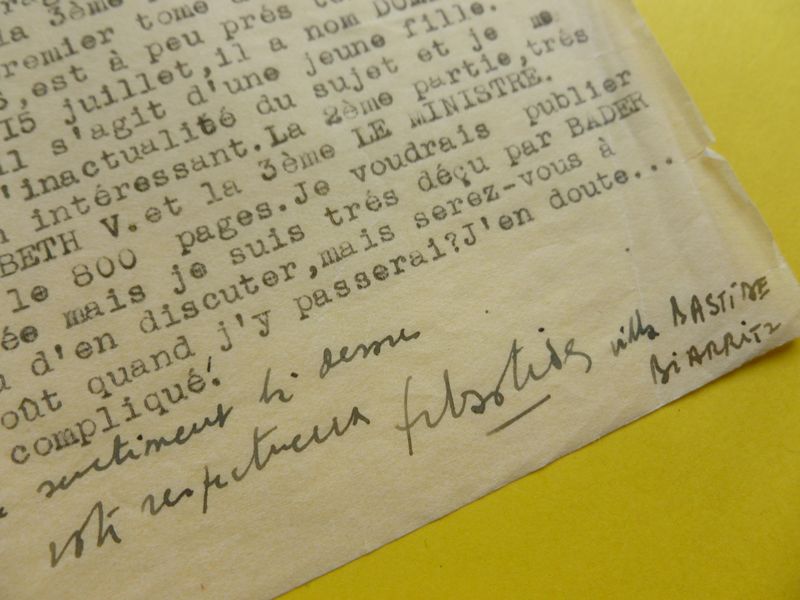 la 3ème
premier tome d
s,est à peu prés t
15 juillet,il a nom DOM
il s'agit d'une jeune fille.
l'inactualité du sujet et je me
n intéressant.La 2ème partie,trés
BETH V.et la 3ème LE MINISTRE.
le 800 pages.Je voudrais publier
ée mais je suis trés déçu par BADER
u d'en discuter,mais serez-vous à
oût quand j'y passerai?J'en doute...
compliqué!
sentiment là dessus
votre respectueux
villa BASTIDE
BIARRITZ